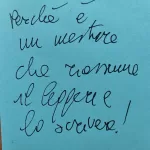 Perché è
un mestiere
che riassume
il leggere e
lo scrivere!